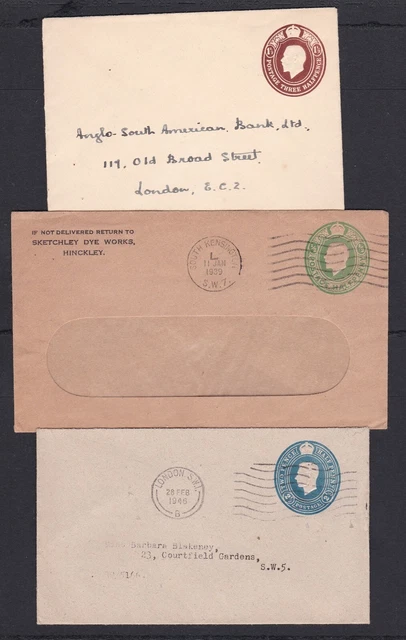 POSTAGE THREE HALFPENCE
Anglo-South American Bank, Ltd.,
117, Old Broad Street,
London, E.C.2.
IF NOT DELIVERED RETURN TO
SKETCHLEY DYE WORKS,
HINCKLEY.
SOUTH KENSINGTON
L
11 JAN
1939
S.W.7.
HALFPENNY
LONDON S.W.1
28 FEB
1946
6
TWOPENCE HALFPENNY
POSTAGE
Barbara Blakeney,
23, Courtfield Gardens,
S.W.5.